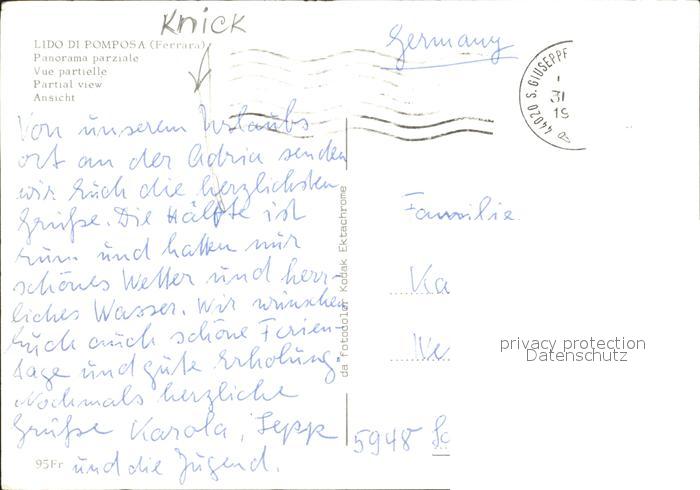 Knick
Germany
LIDO DI POMPOSA (Ferrara)
Panorama parziale
Vue partielle
Partial view
Ansicht
44020 S. GIUSEPPE
31
Von unserem Urlaubs
ort an der Adria senden
wir Euch die herzlichsten
Grüße. Die Hälfte ist
rum und hatten nur
schönes Wetter und herr-
liches Wasser. Wir wünschen
Euch auch schöne Ferien-
tage und gute Erholung.
Nochmals herzliche
Grüße Karola, Sepp
und die Jugend.
95Fr
da fotocolor Kodak Ektachrome
Familie
Ka
We
5948 Sc
privacy protection
Datenschutz